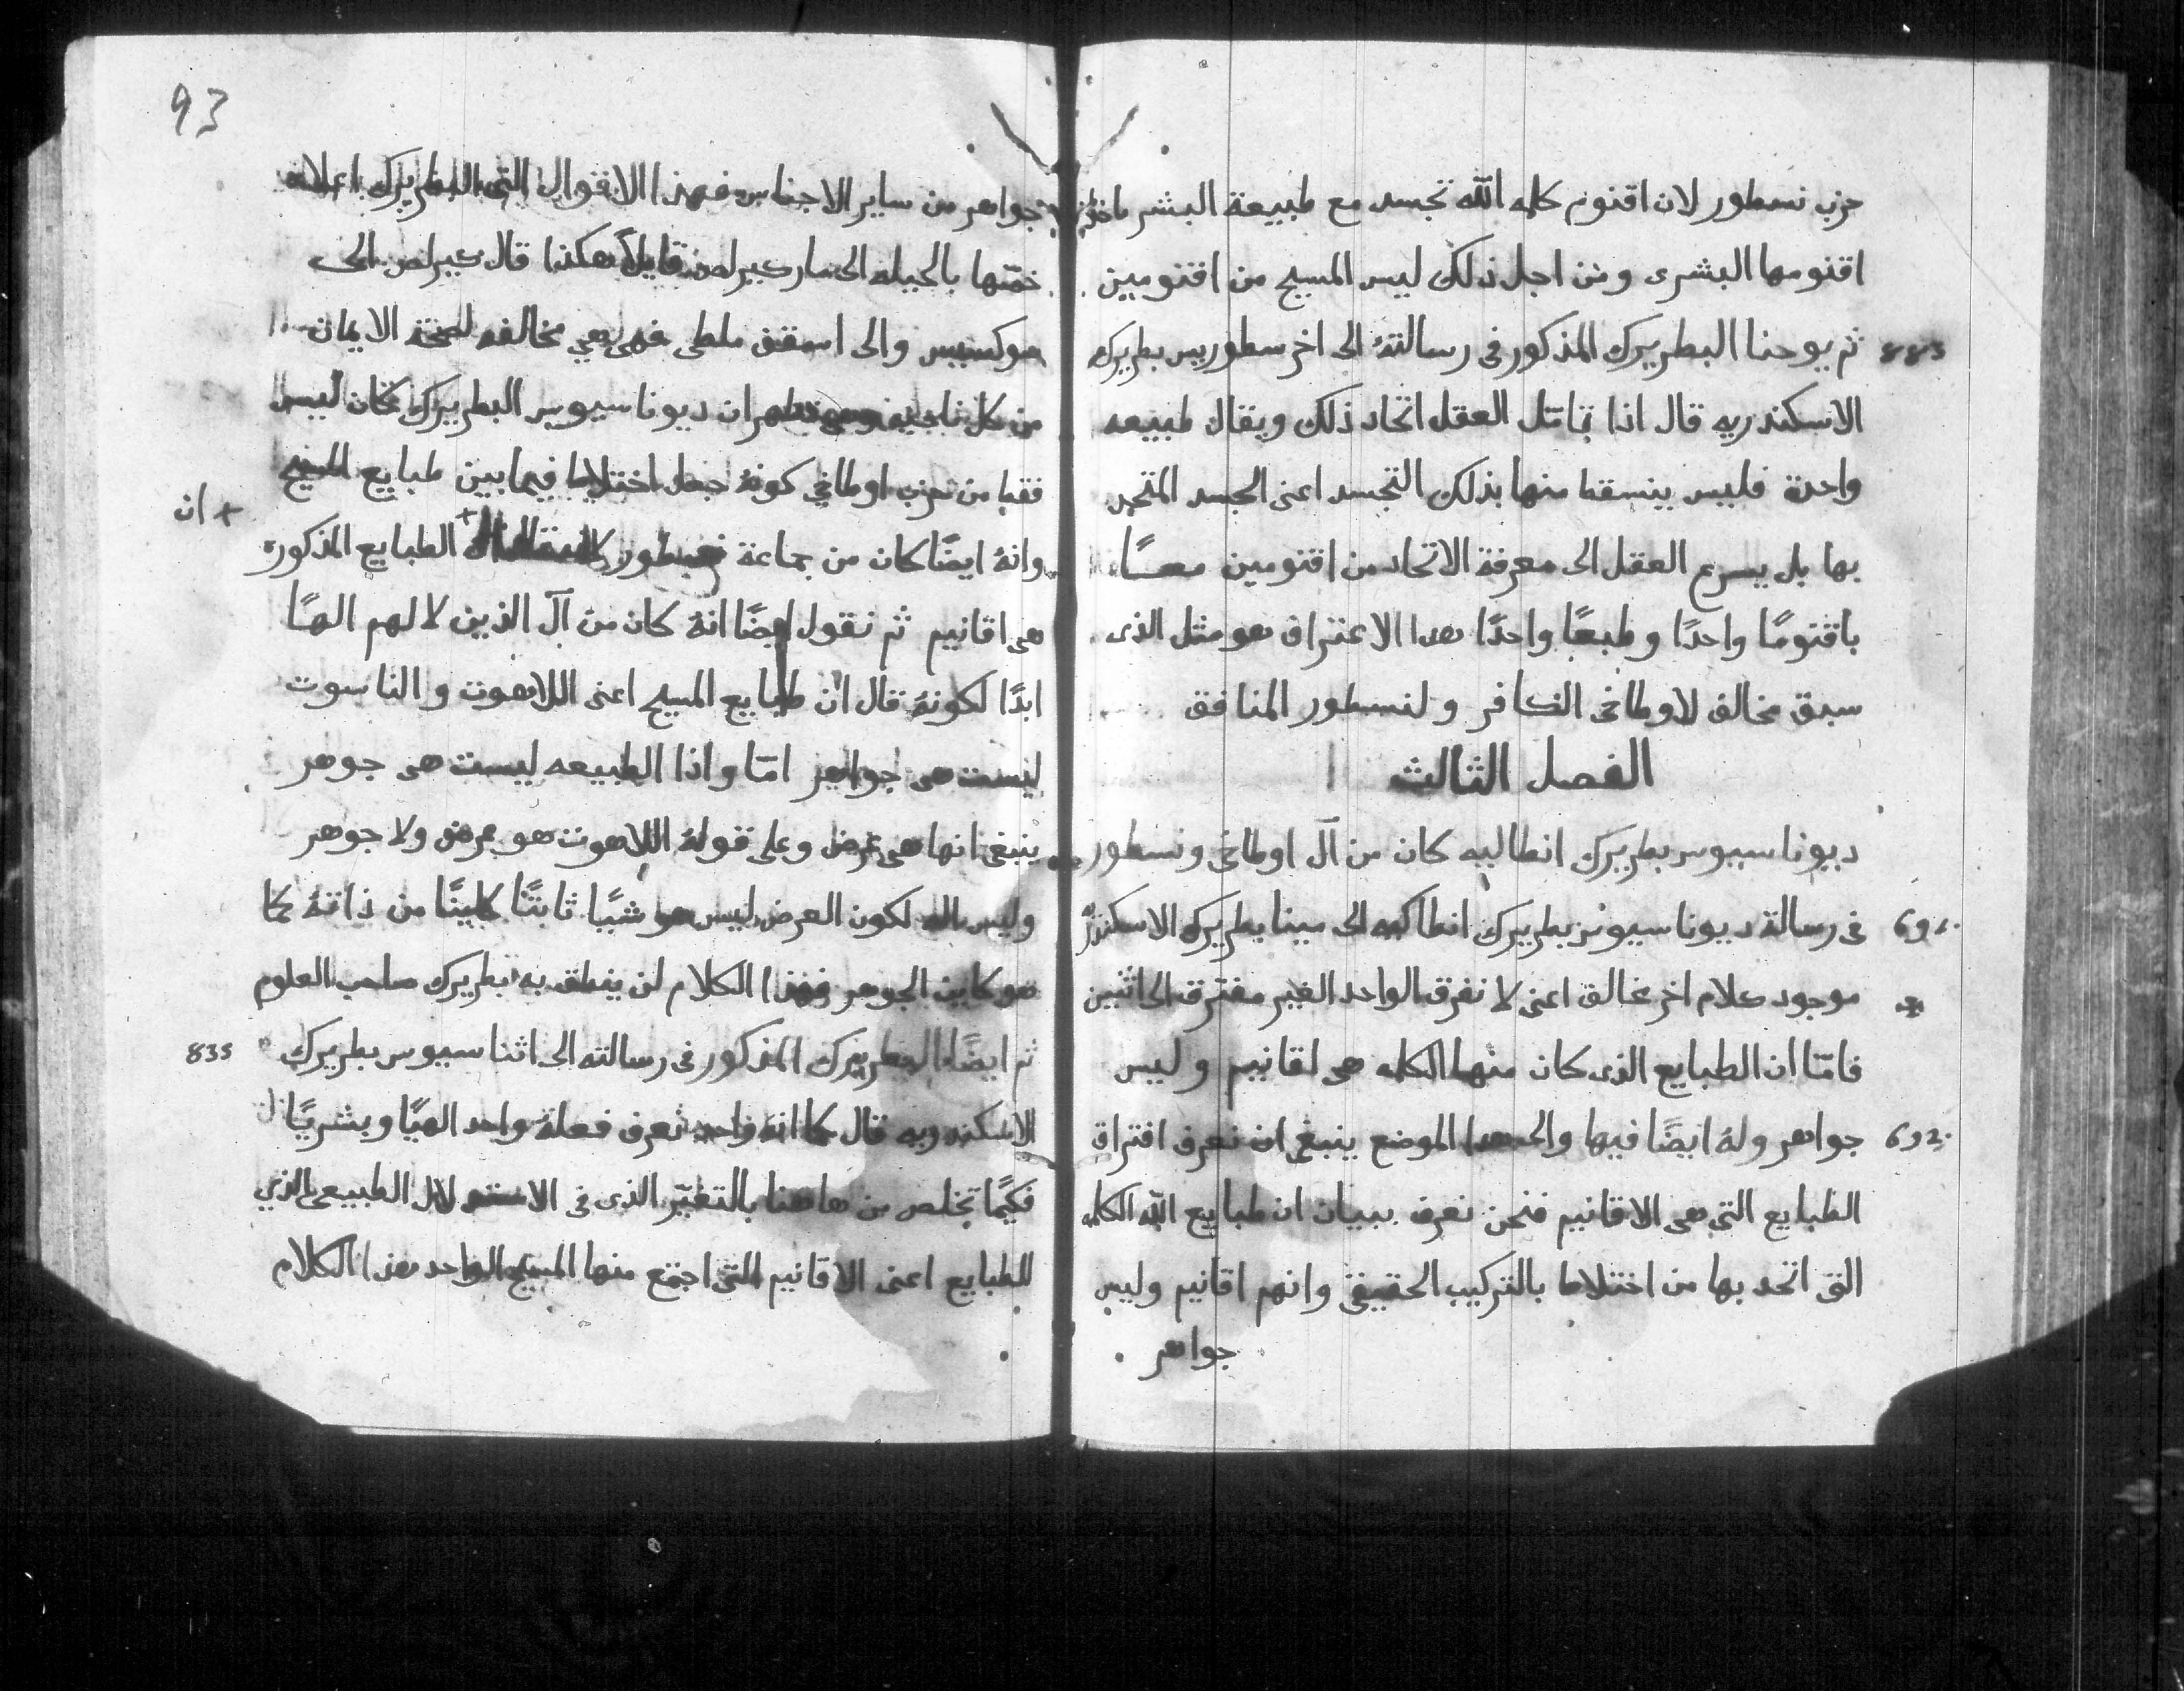 حزب نسطور لان اقنوم كلمه الله تجسد مع طبيعة البشر ماخلا
اقنومها البشرى ومن اجل ذلك ليس المسيح من اقنومين
883 ثم يوحنا البطريرك المذكور فى رسالتهُ الى اخرسطوريس بطريرك
الاسكندريه قال اذا تامّل العقل اتحاد ذلك ويقال طبيعه
واحدة فليس ينسقط منها بذلك التجسد اعنى الجسد المتحد
بها بل يسرع العقل الى معرفة الاتحاد من اقنومين معـًا
باقنومًا واحدًا وطبعًا واحدًا هدا الاعتراف هو مثل الذى
سبق مخالف لاوطاخى الكافر ولنسطور المنافق
الفصل الثالث
ديوناسيوس بطريرك انطاليه كان من آل اوطاخى ونسطور
691. فى رسالة ديوناسيوس بطريرك انطاكيه الى مينا بطريرك الاسكندريه
موجود كلام اخر غالق اعنى لا نفرق الواحد الغير مفترق الى اثنين
فامّا ان الطبايع الذى كان منها الكلمه هى اقانيم وليس
692. جواهر ولهُ ايضًا فيها والى هدا الموضع ينبغى ان نعرف افتراق
الطبايع التى هى الاقانيم فنحن نعرف ببيان ان طبايع الله الكلمه
التى اتحد بها من اختلاط بالتركيب الحقيقى وانهم اقانيم وليس
جواهر
93
جواهر من ساير الاجناس فهذا الاقوال التى البطريرك اعلاه
ختمها بالحيله الى مار كيرلص قايلاً هكذا قال كيرلص الى
سوكسيس والى اسقف ملطى فهى هي مخالفه لصحة الايمان
من كل ناحيه ان ديوناسيوس البطريرك كان ليس
فقط من حزب اوطاخي كونهُ جعل اختلاط فيما بين طبايع المسيح
وانهُ ايضًا كان من جماعة نسطور + الطبايع المذكوره
+ ان
هى اقانيم ثم نقول ايضًا انهُ كان من آل الذين لا لهم الهًا
ابدًا لكونهُ قال ان طبايع المسيح اعنى اللاهوت والناسوت
ليست هى جواهر امّا واذا الطبيعه ليست هى جوهر
ينبغى انها هى عرض وعلى قولهُ اللاهوت هو عرض ولا جوهر
وليس اله لكون العرض ليس هو شيًا ثابتًا كاينًا من ذاتهُ كما
هو كاين الجوهر فهذا الكلام لن ينطق به بطريرك صاحب العلوم
835 ثم ايضًا البطريرك المذكور فى رسالته الى اثناسيوس بطريرك
الاسكندريه قال كما انهُ واحد نعرف فعلهُ واحد الهيًا وبشريًا
فكيما تخلص من هاهنا بالتغيّر الذى فى الطبيعى الذي
للطبايع اعنى الاقانيم التى اجتمع منها المسيح الواحد هذا الكلام